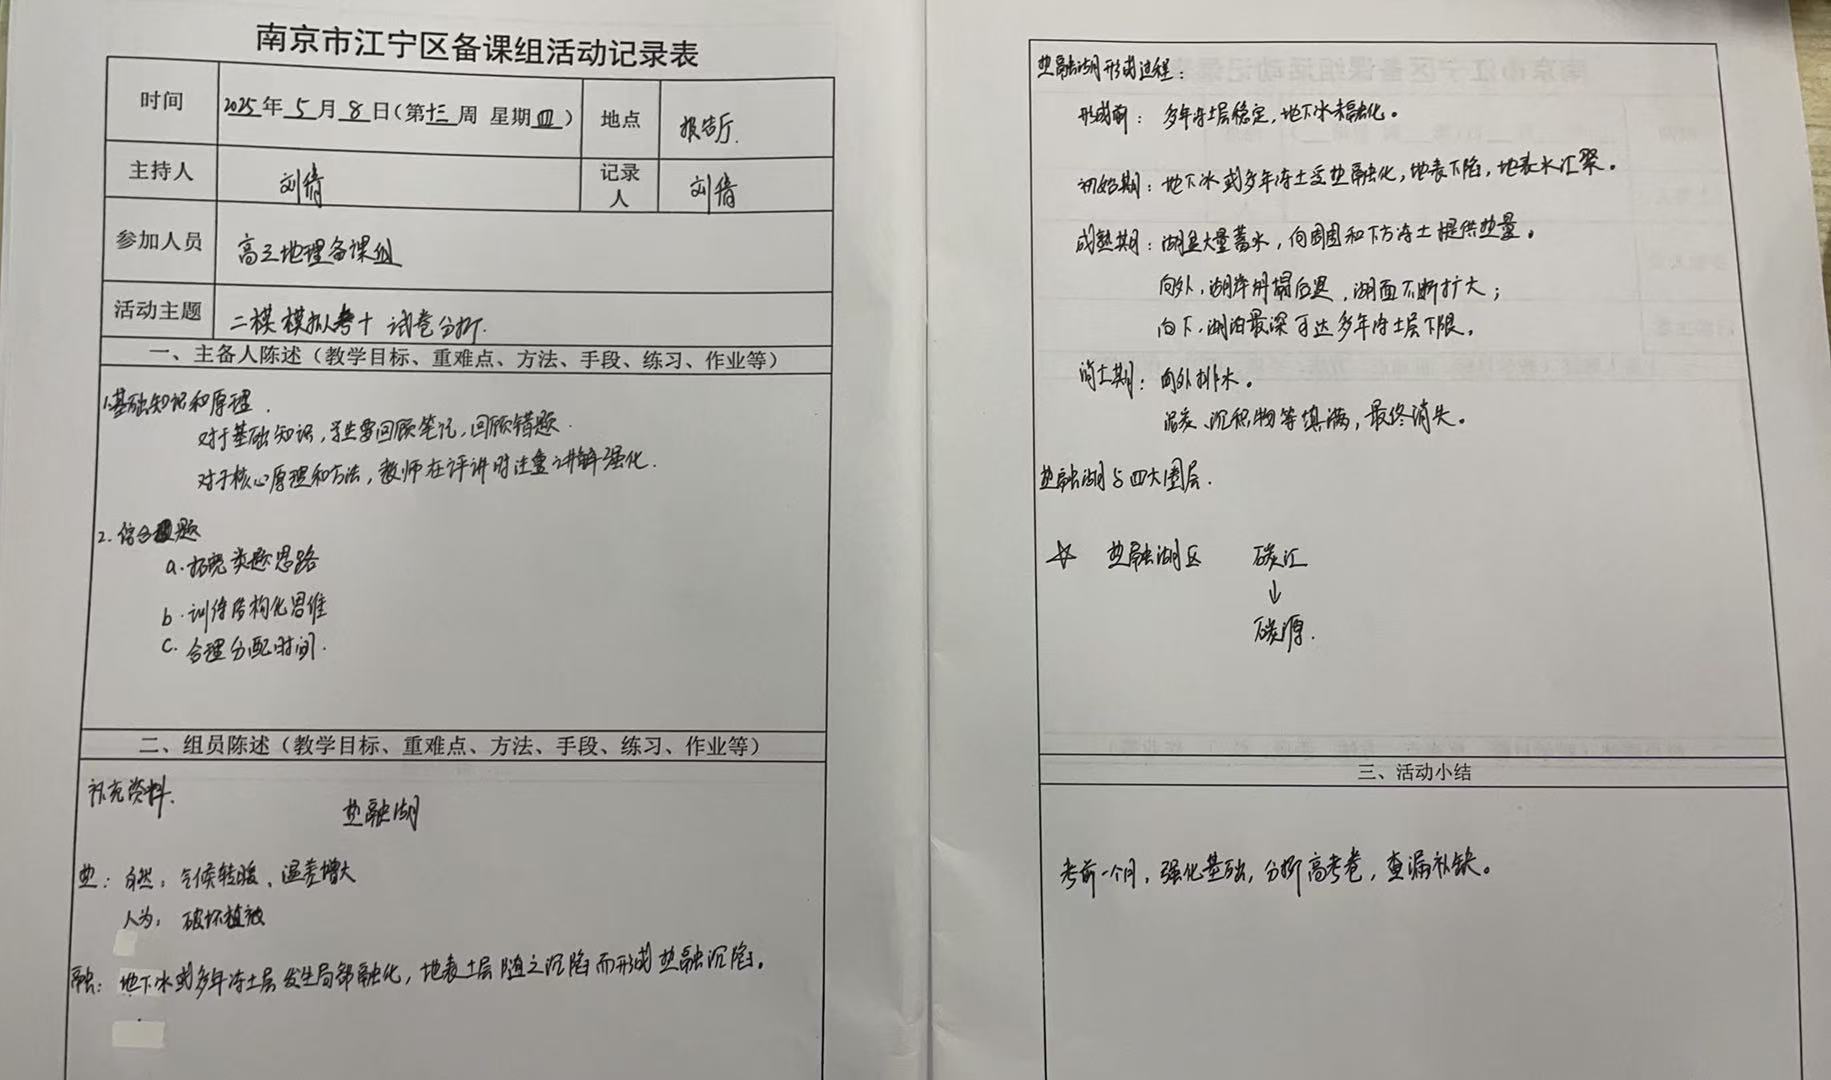 南京市江宁区备课组活动记录表
时间 2025年5月8日(第十三周 星期四) 地点 报告厅.
主持人 刘倩 记录人 刘倩
参加人员 高三地理备课组
活动主题 二模模拟考+试卷分析.
一、主备人陈述(教学目标、重难点、方法、手段、练习、作业等)
1.基础知识和原理.
对于基础知识,学生要回顾笔记,回顾错题.
对于核心原理和方法,教师在评讲时注重讲解强化.
2.综合题
a.拓宽类题思路
b.训练结构化思维
c.合理分配时间.
二、组员陈述(教学目标、重难点、方法、手段、练习、作业等)
补充资料.
热融湖
热:自然:气候转暖、温差增大
人为:破坏植被
融:地下冰或多年冻土层发生局部融化,地表土层随之沉陷而形成热融沉陷。
热融湖形成过程:
形成前:多年冻土层稳定,地下冰未融化。
初始期:地下冰或多年冻土受热融化,地表下陷,地表水汇聚。
成熟期:湖盆大量蓄水,向周围和下方冻土提供热量。
向外,湖岸坍塌后退,湖面不断扩大;
向下,湖泊最深可达多年冻土层下限。
消亡期:向外排水。
泥炭、沉积物等填满,最终消失。
热融湖与四大圈层.
☆ 热融湖区 碳汇
↓
碳源.
三、活动小结
考前一个月,强化基础,分析高考卷,查漏补缺。